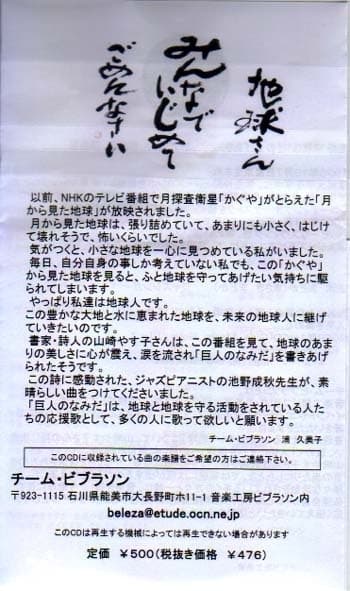 地球さん
みんなで
いじめて
ごめんなさい
以前、NHKのテレビ番組で月探査衛星「かぐや」がとらえた「月
から見た地球」が放映されました。
月から見た地球は、張り詰めていて、あまりにも小さく、はじけ
て壊れそうで、怖いくらいでした。
気がつくと、小さな地球を一心に見つめている私がいました。
毎日、自分自身の事しか考えていない私でも、この「かぐや」
から見た地球を見ると、ふと地球を守ってあげたい気持ちに駆
られてしまいます。
やっぱり私達は地球人です。
この豊かな大地と水に恵まれた地球を、未来の地球人に継げ
ていきたいのです。
書家・詩人の山崎やす子さんは、この番組を見て、地球のあま
りの美しさに心が震え、涙を流され「巨人のなみだ」を書きあげ
られたそうです。
この詩に感動された、ジャズピアニストの池野成秋先生が、素
晴らしい曲をつけてくださいました。
「巨人のなみだ」は、地球と地球を守る活動をされている人た
ちの応援歌として、多くの人に歌って欲しいと願います。
チーム・ビブラソン 浦 久美子
このCDに収録されている曲の楽譜をご希望の方はご連絡下さい。
チーム・ビブラソン
〒923-1115 石川県能美市大長野町ホ11-1 音楽工房ビブラソン内
beleza@etude.ocn.ne.jp
このCDは再生する機械によっては再生できない場合があります
定価 ¥500(税抜き価格 ¥476)